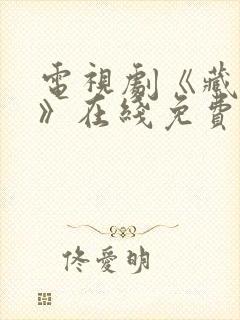 電視劇《藏
》在綫免費
佟愛明